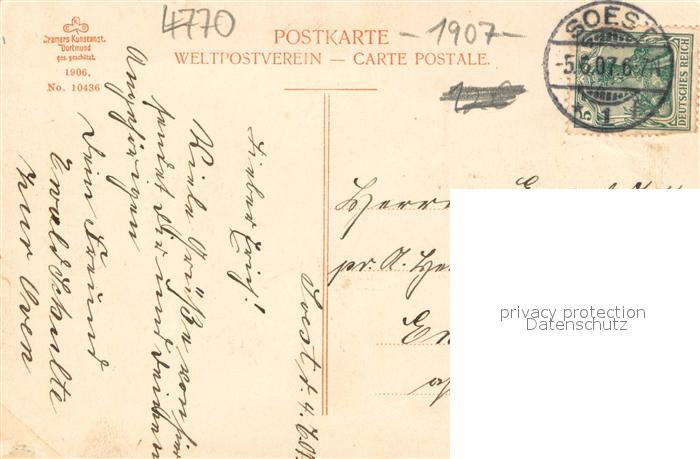 4770
Cramers Kunstanst.
Dortmund
ges. geschützt.
1906.
No. 10436
POSTKARTE
-1907-
WELTPOSTVEREIN — CARTE POSTALE.
SOEST
-5.6.07.6-7
* 1
5
DEUTSCHES REICH
Soest d. 4.
Lieber
Viele Grüße von hier
sendet Dir und Deinen
Angehörigen
Dein Freund
Ewald Schulte
Herrn
pr. A. He
privacy protection
Datenschutz